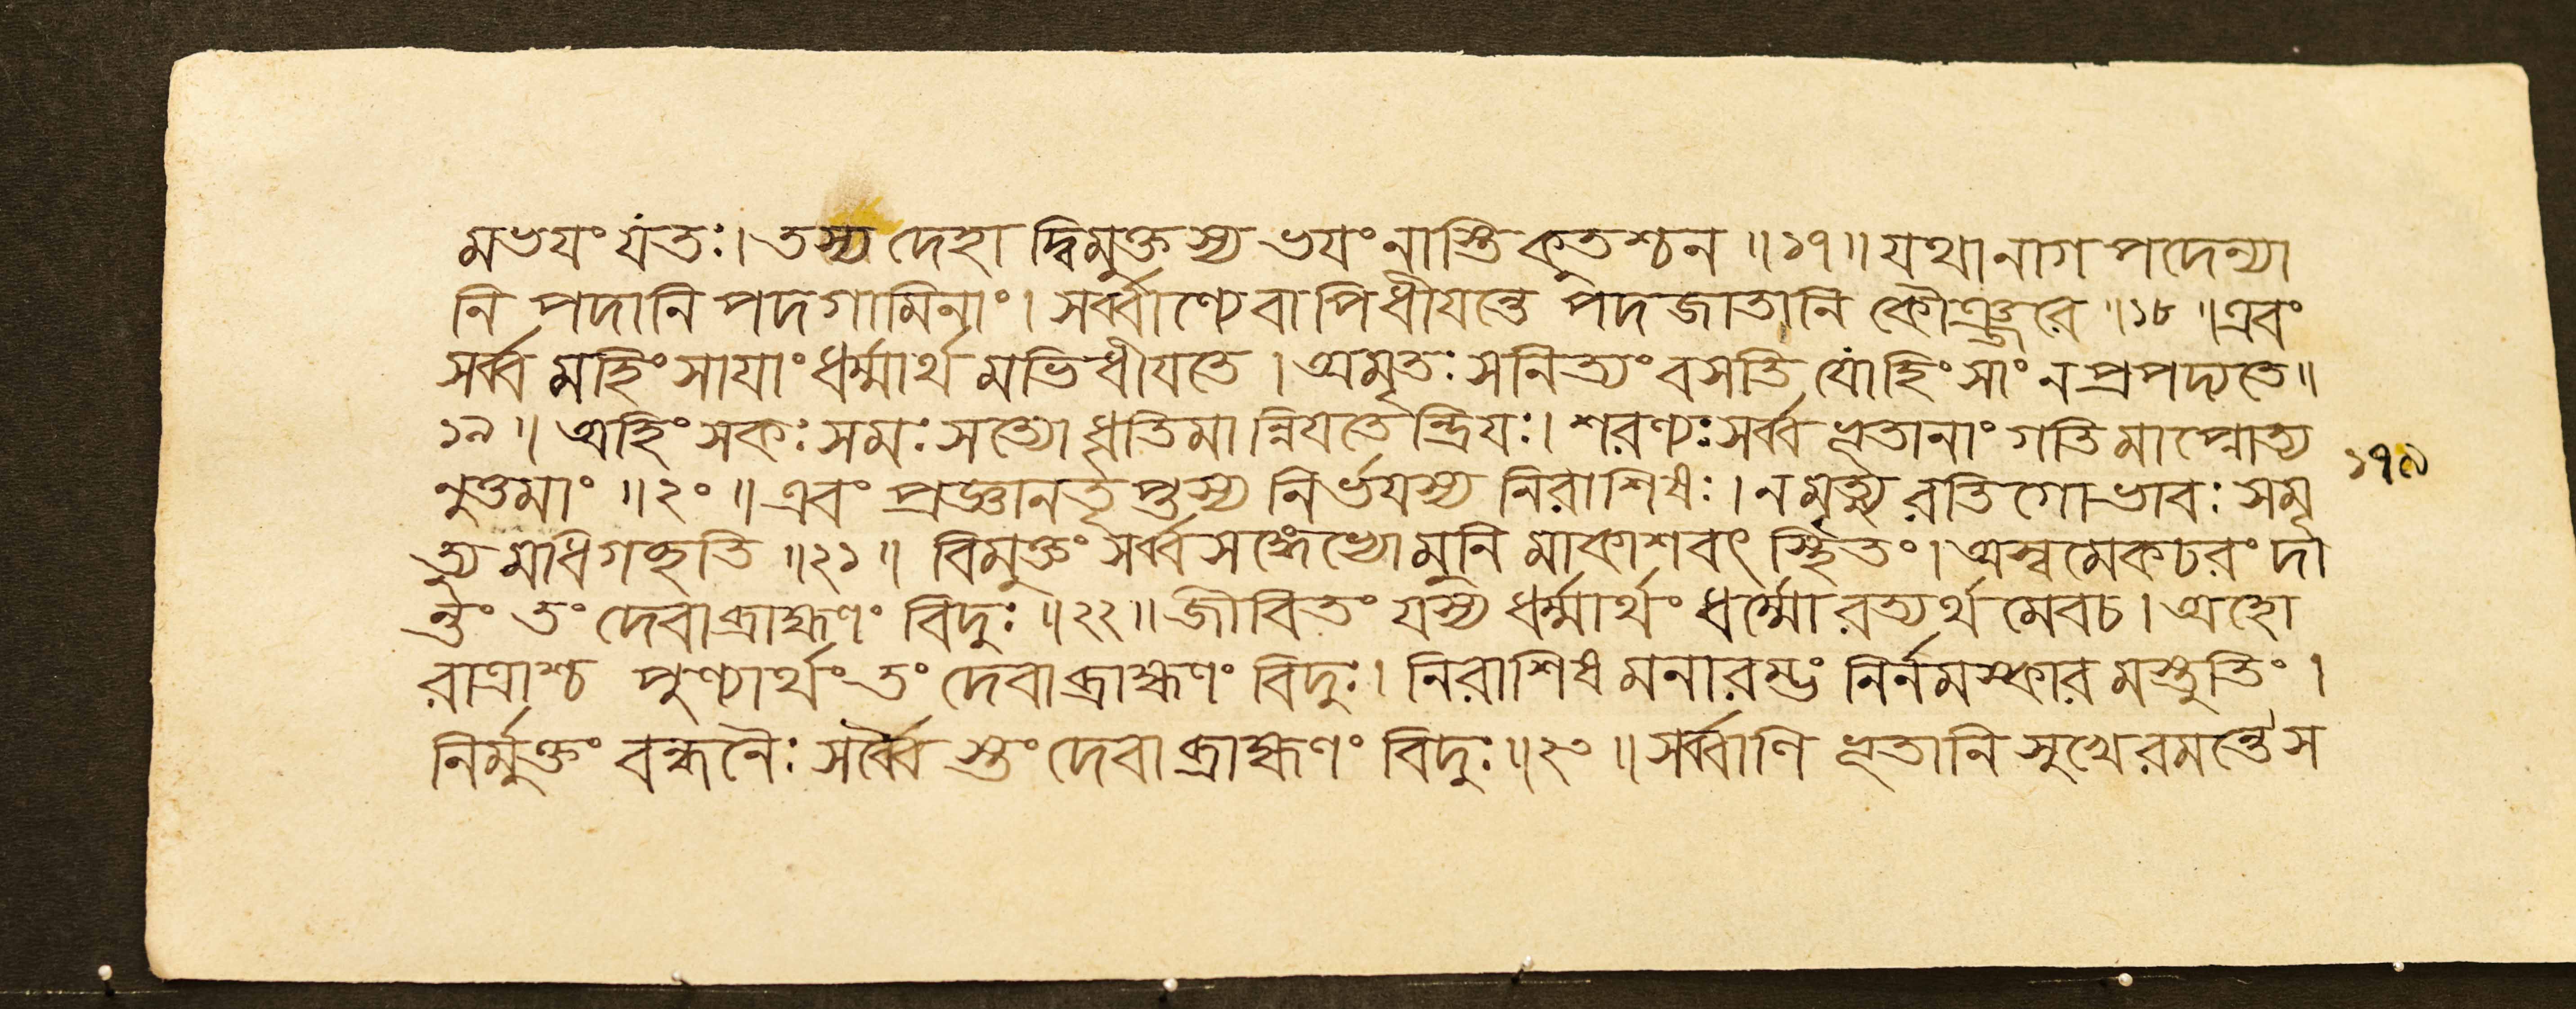 মভযং যতঃ। তস্য দেহা দ্বিমুক্তস্য ভযং নাস্তি কুতশ্চন ॥১৭॥ যথা নাগ পদেন্যা
নি পদানি পদ গামিনাং। সর্ব্বাণ্যেবাপিধীযন্তে পদ জাতানি কৌঞ্জরে ॥১৮॥ এবং
সর্ব্ব মহিংসাযাং ধর্ম্মার্থ মভিধীযতে। অমৃতঃ সনিত্যং বসতি যোহিংসাং ন প্রপদ্যতে॥
১৯॥ অহিংসকঃ সমঃ সত্যো ধৃতিমান্নিযতেন্দ্রিযঃ। শরণ্যঃ সর্ব্ব ভূতানাং গতি মাপ্নোত্য
নুত্তমাং ॥২০॥ এবং প্রজ্ঞানতৃপ্তস্য নির্ভযস্য নিরাশিষঃ। ন মৃত্যু রতিগোভাবঃ সমৃ
ত্যু মধিগচ্ছতি ॥২১॥ বিমুক্তং সর্ব্ব সঙ্গেভ্যো মুনি মাকাশবৎ স্থিতং। অস্ব মেকচরং দা
ন্তং তং দেবা ব্রাহ্মণং বিদুঃ ॥২২॥ জীবিতং যস্য ধর্ম্মার্থং ধর্ম্মো রত্যর্থ মেবচ। অহো
রাত্রাশ্চ পুণ্যার্থং তং দেবা ব্রাহ্মণং বিদুঃ। নিরাশিষ মনারম্ভং নির্নমস্কার মস্তুতিং।
নির্মুক্তং বন্ধনৈঃ সর্ব্বৈ স্তং দেবা ব্রাহ্মণং বিদুঃ ॥২৩॥ সর্ব্বাণি ভূতানি সুখে রমন্তে স
১৭৯